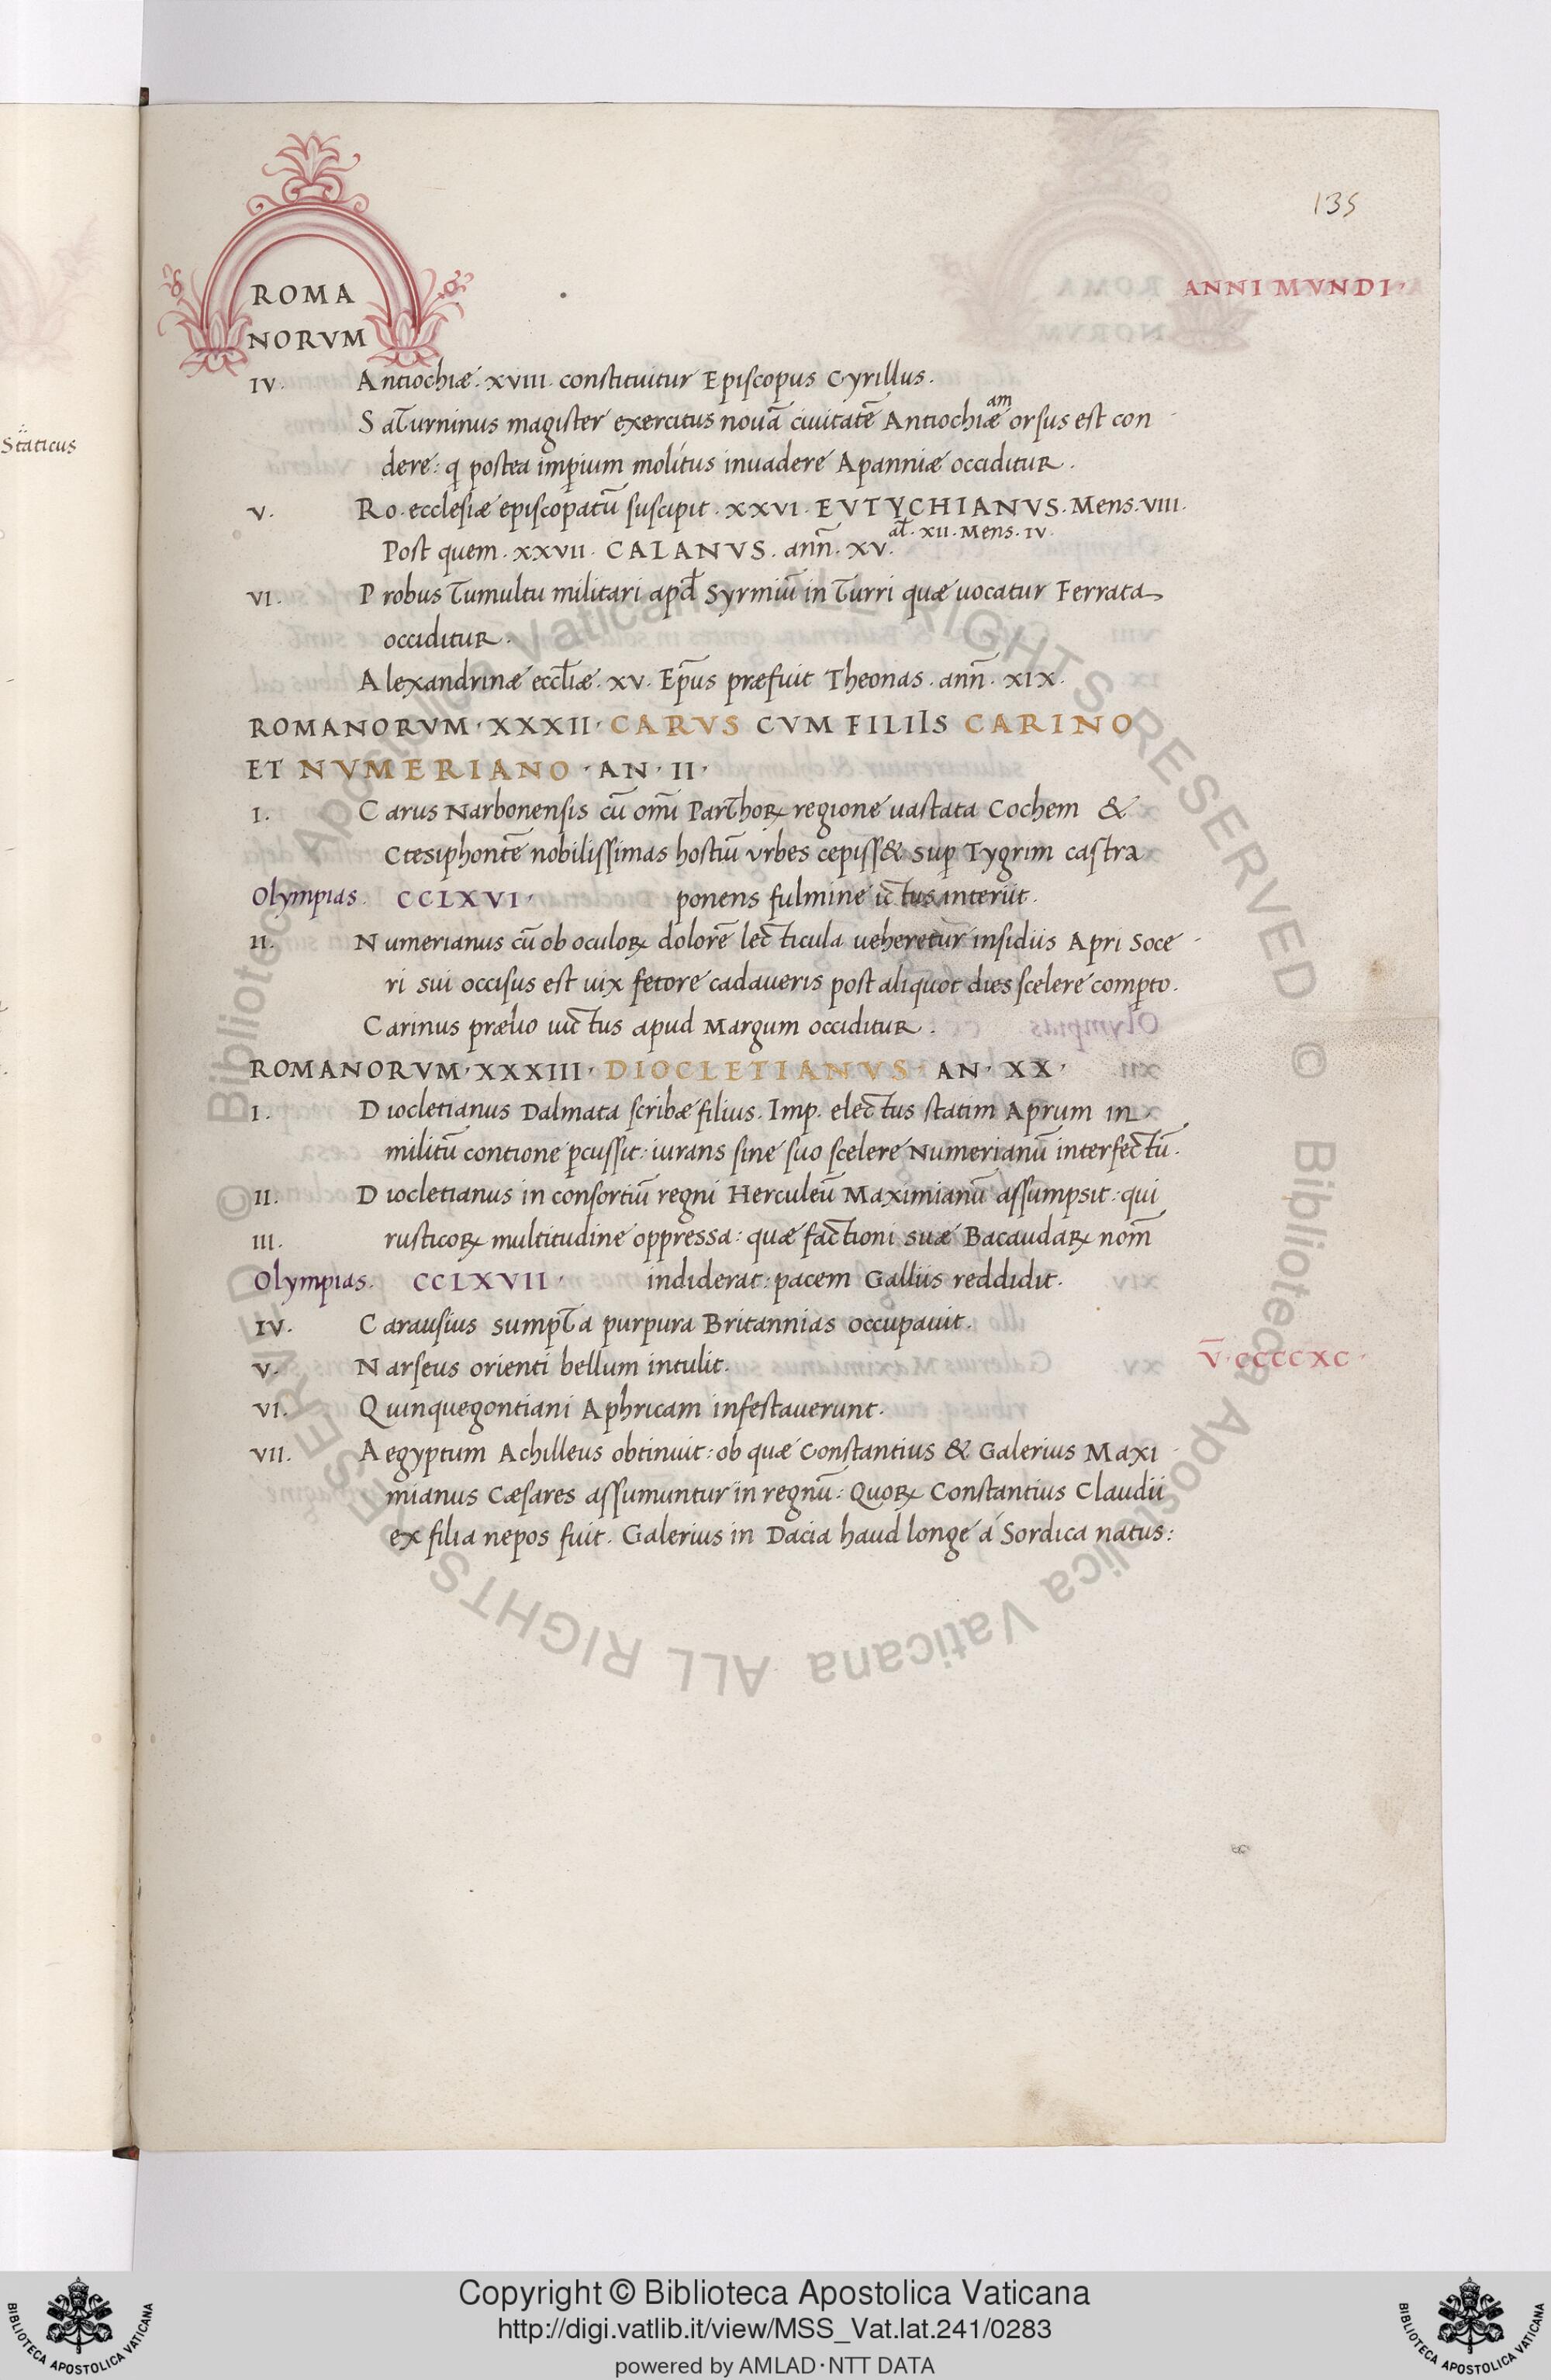 135
ROMA
NORVM
ANNI MVNDI·
Staticus
IV. Antiochiæ. XVIII. constituitur Episcopus Cyrillus.
am
Saturninus magister exercitus nouā ciuitatē Antiochiæ orsus est con
dere: q postea impium molitus inuadere Apanniæ occiditur.
V. Ro. ecclesiæ episcopatū suscipit. XXVI. EVTYCHIANVS. Mens. VIII.
al. XII. Mens. IV.
Post quem. XXVII. CAIANVS. ann̄. XV.
VI. Probus tumultu militari apd Syrmiū in turri quæ uocatur Ferrata
occiditur.
Alexandrinæ eccl̄iæ. XV. Ep̄us præfuit Theonas. ann̄. XIX.
ROMANORVM·XXXII·CARVS CVM FILIIS CARINO
ET NVMERIANO·AN·II·
I. Carus Narbonensis cū om̄i Parthoꝝ regione uastata Cochem &
Ctesiphontē nobilissimas hostiū urbes cepiss& suꝑ Tygrim castra
Olympias. CCLXVI· ponens fulmine ictus interiit.
II. Numerianus cū ob oculoꝝ dolorē lecticula ueheretur insidiis Apri Soce
ri sui occisus est uix fetore cadaueris post aliquot dies scelere compto.
Carinus prælio uictus apud Margum occiditur.
ROMANORVM·XXXIII·DIOCLETIANVS·AN·XX·
I. Diocletianus Dalmata scribæ filius. Imp. electus statim Aprum in
militū contione ꝑcussit: iurans sine suo scelere Numerianū interfectū.
II. Diocletianus in consortiū regni Herculeū Maximianū assumpsit: qui
III. rusticoꝝ multitudine oppressa: quæ factioni suæ Bacaudaꝝ nom̄
Olympias. CCLXVII· indiderat: pacem Galliis reddidit.
IV. Carausius sumpta purpura Britannias occupauit.
V. Narseus orienti bellum intulit.
V̄·CCCCXC·
VI. Quinquegontiani Aphricam infestauerunt.
VII. Aegyptum Achilleus obtinuit: ob quæ Constantius & Galerius Maxi
mianus Cæsares assumuntur in regnū: Quoꝝ Constantius Claudii
ex filia nepos fuit. Galerius in Dacia haud longe á Sordica natus:
© Biblioteca Apostolica Vaticana ALL RIGHTS RESERVED
© Biblioteca Apostolica Vaticana ALL RIGHTS RESERVED
BIBLIOTECA APOSTOLICA VATICANA
Copyright © Biblioteca Apostolica Vaticana
http://digi.vatlib.it/view/MSS_Vat.lat.241/0283
powered by AMLAD·NTT DATA
BIBLIOTECA APOSTOLICA VATICANA